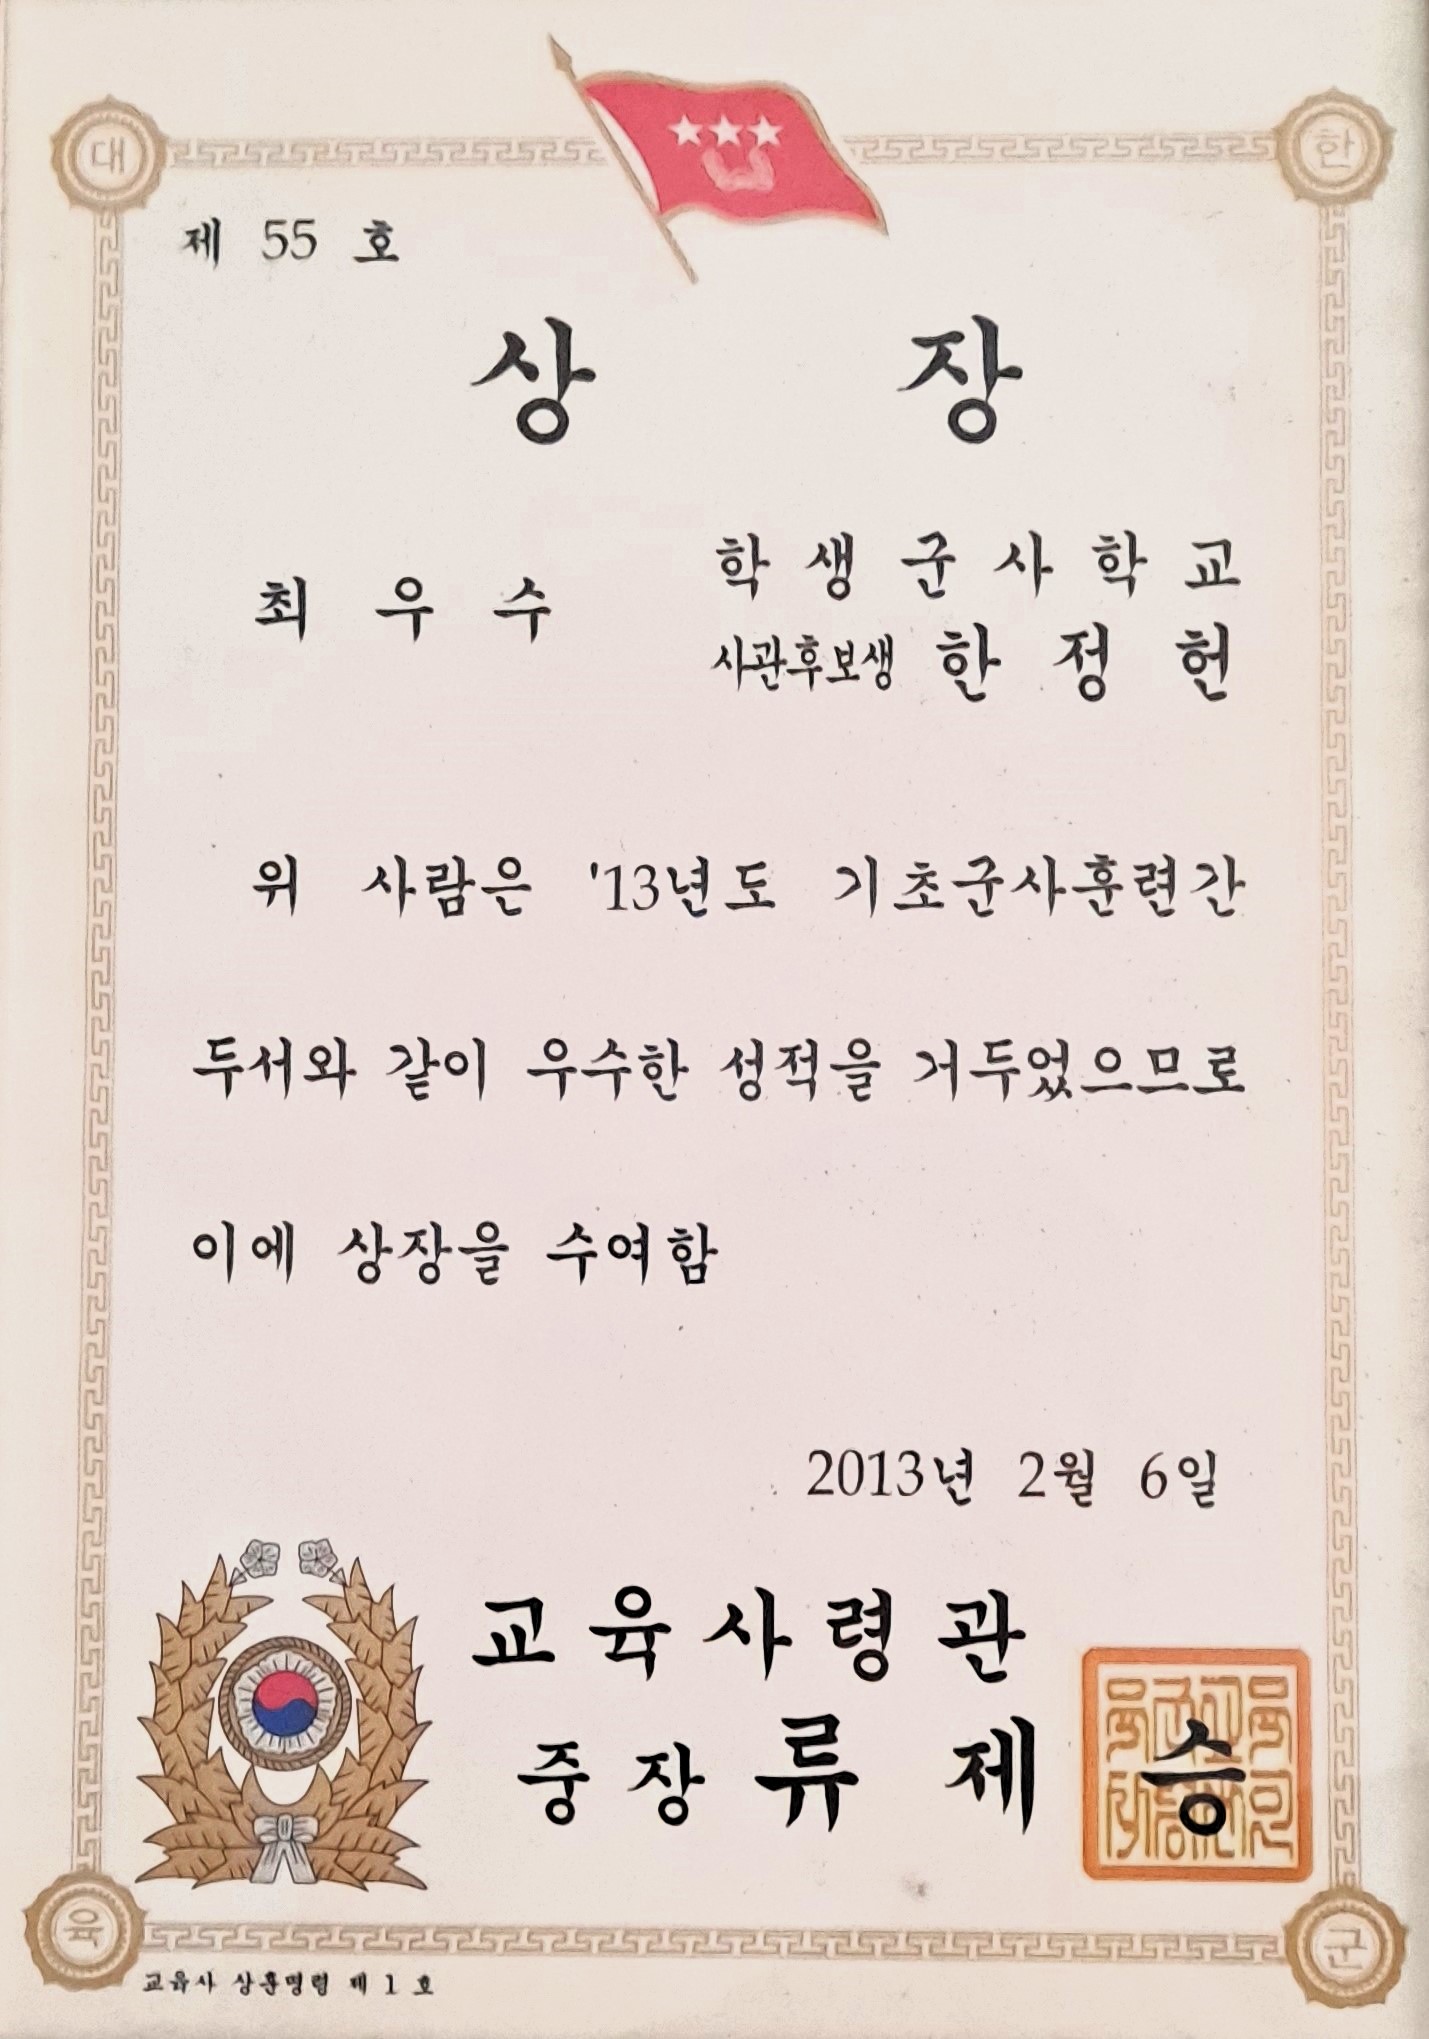 대 한
제 55 호
상 장
최 우 수
학 생 군 사 학 교
사관후보생 한 정 헌
위 사람은 '13년도 기초군사훈련간
두서와 같이 우수한 성적을 거두었으므로
이에 상장을 수여함
2013년 2월 6일
교 육 사 령 관
중 장 류 제 승
육 군
교육사 상훈명령 제 1 호